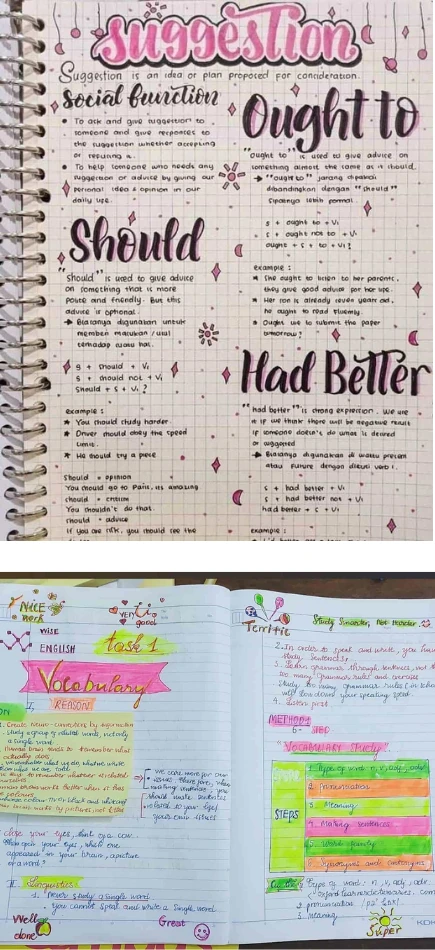 suggestion
Suggestion is an idea or plan proposed for consideration.
social function
• To ask and give suggestion to
someone and give responses to
the suggestion whether accepting
or refusing it.
• To help someone who needs any
suggestion or advice by giving our
personal idea & opinion in our
daily life.
Should
"Should" is used to give advice
on something that is more
polite and friendly. But this
advice is optional.
→ Biasanya digunakan untuk
memberi masukan/usul
terhadap suatu hal.
s + should + V1
s + should not + V1
Should + s + V1 ?
example :
★ You should study harder
★ Driver should obey the speed
limit.
★ He should try a piece
Should = opinion
You should go to Paris, its amazing
should = critism
You shouldn't do that.
should = advice
If you are sick, you should see the
Ought to
"Ought to" is used to give advice on
something almost the same as it should.
→ "ought to" jarang dipakai
dibandingkan dengan "should"
sifatnya lebih formal.
s + ought to + V1
s + ought not to + V1
ought + s + to + V1 ?
example :
★ She ought to listen to her parents,
they give good advice for her life.
★ Her son is already seven years old,
he ought to read fluently.
★ Ought we to submit the paper
tomorrow?
Had Better
"had better" is strong expression. We use
it if we think there will be negative result
if someone doesn't do what is desired
or suggested
→ Biasanya digunakan di waktu present
atau future dengan diikuti verb 1.
s + had better + V1
s + had better not + V1
had better + s + V1
example :
NICE
work
VERY
good
WISE
ENGLISH
task 1
Vocabulary
I. REASON
1. Create neuro-connectors by
study a group of related words, not only
a single word.
human brain tends to remember what
actually does
human brain works better when it has
close your eyes, think of a cow.
when open your eyes, which one
appeared in your brain, a picture
of a word?
II. Linguistics
1. Never study a single word
You cannot speak and write a single word
Well
done
Great
Terrific
Study Smarter, not harder
2. In order to speak and write, you have
study sentences.
3. Learn grammar through sentences, not
too many grammar rules and exercises
Study too many grammar rules
will slow down your speaking speed.
4. Listen first
METHODS
6- STEP
"VOCABULARY Study"
STEPS
1. Type of word: n, v, adj, adv
2. Pronunciation
3. Meaning
4. Making sentences
5. Word family
6. Synonyms and antonyms
1. Type of word: n, v, adj, adv
2. pronunciation
3. meaning
Super